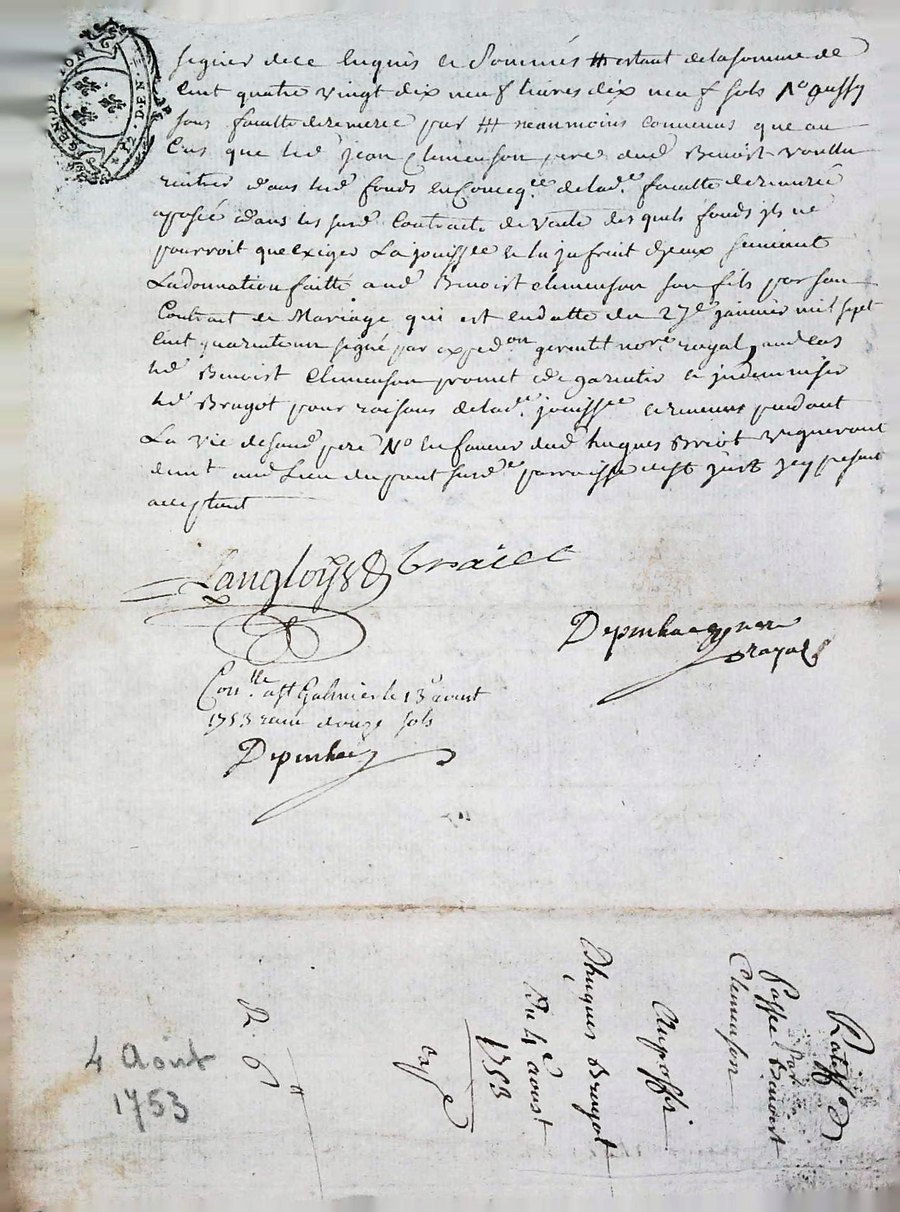 GEN. DE LYON
P2. DEN
signer de ce Enquis et Sommés # estant de la somme de
Cent quatre vingt dix neuf livres dix neuf sols No aussy
sous faculté de remeré par # neanmoins convenus que au
Cas que led jean Clemenson pere dud Benoist voulu
rentrer dans led fonds en Concequee de lad.e faculté de remeré
aposée dans les susd Contracts de vente des quels fonds ils ne
pourroit que exiger La jouissee et lu ju fruit d'jeux suivant
La donnation faitte aud Benoist clemenson son fils par son
Contrat de Mariage qui est en datte du 27e janvier mil sept
cent quarente un signé par expedon nore royal, aud cas
led Benoist Clemenson promet de garentir et jndemniser
led Brugot pour raisons de lad.e jouissee pendant
La vie de sond pere No en faveur dud hugues Vigneront
demt aud Lieu du pont susd.e parroisse jcy present
acceptant
Langloys
Depinhac nore
royal
Conlle a st Galmier le 13e aout
1753 recu douze sols
Depinhac
Ratiff.on
Passée par Benoist
Clemenson
Au proffit
D'hugues Brugot
Du 4e aoust
1753
R. 6
4 Août
1753